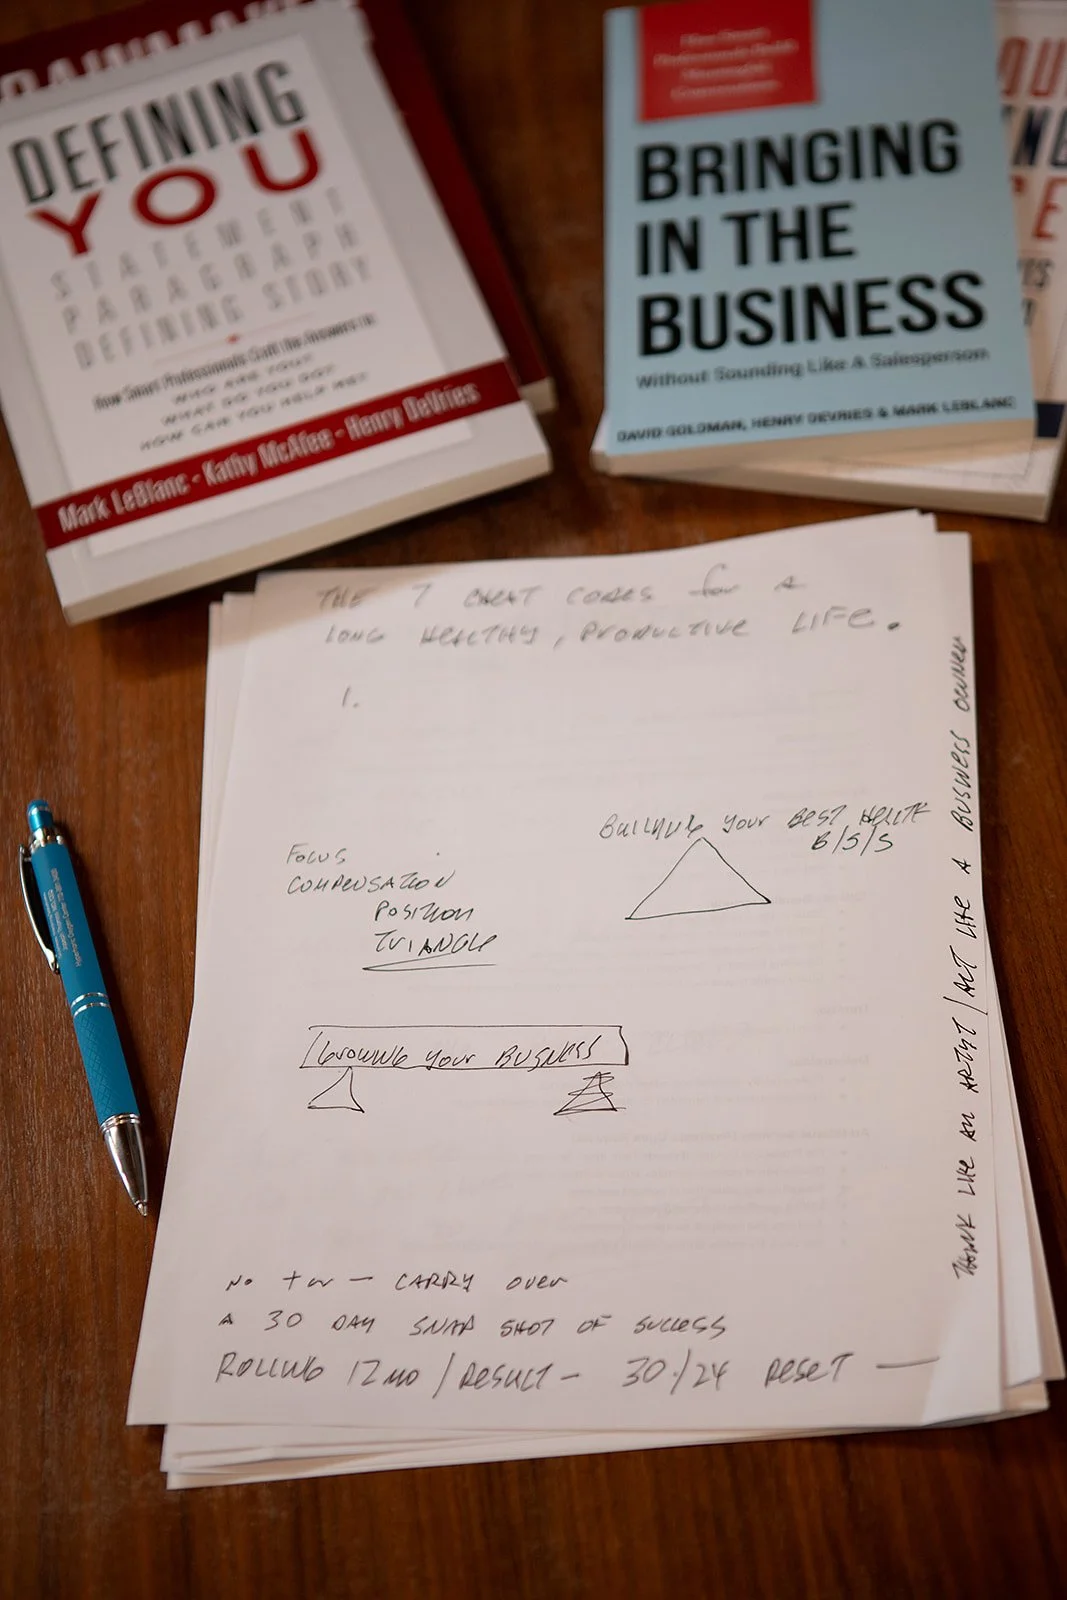 DEFINING
YOU
STATEMENT
PARAGRAPH
DEFINING STORY
How Smart Professionals Craft the Answers to:
WHO ARE YOU?
WHAT DO YOU DO?
HOW CAN YOU HELP ME?
Mark LeBlanc - Kathy McAfee - Henry DeVries
BRINGING
IN THE
BUSINESS
Without Sounding Like A Salesperson
DAVID GOLDMAN, HENRY DEVRIES & MARK LEBLANC
THE 7 CHEAT CODES for A
LONG HEALTHY, PRODUCTIVE LIFE.
1.
BUILDING your BEST HEALTH
B/S/S
FOCUS
COMPENSATION
POSITION
TRIANGLE
GROWING your BUSINESS
NO CARRY over
A 30 DAY SNAP SHOT OF SUCCESS
ROLLING 12 MO / RESULT - 30/24 RESET —
THINK LIKE AN ARTIST / ACT LIKE A BUSINESS OWNER